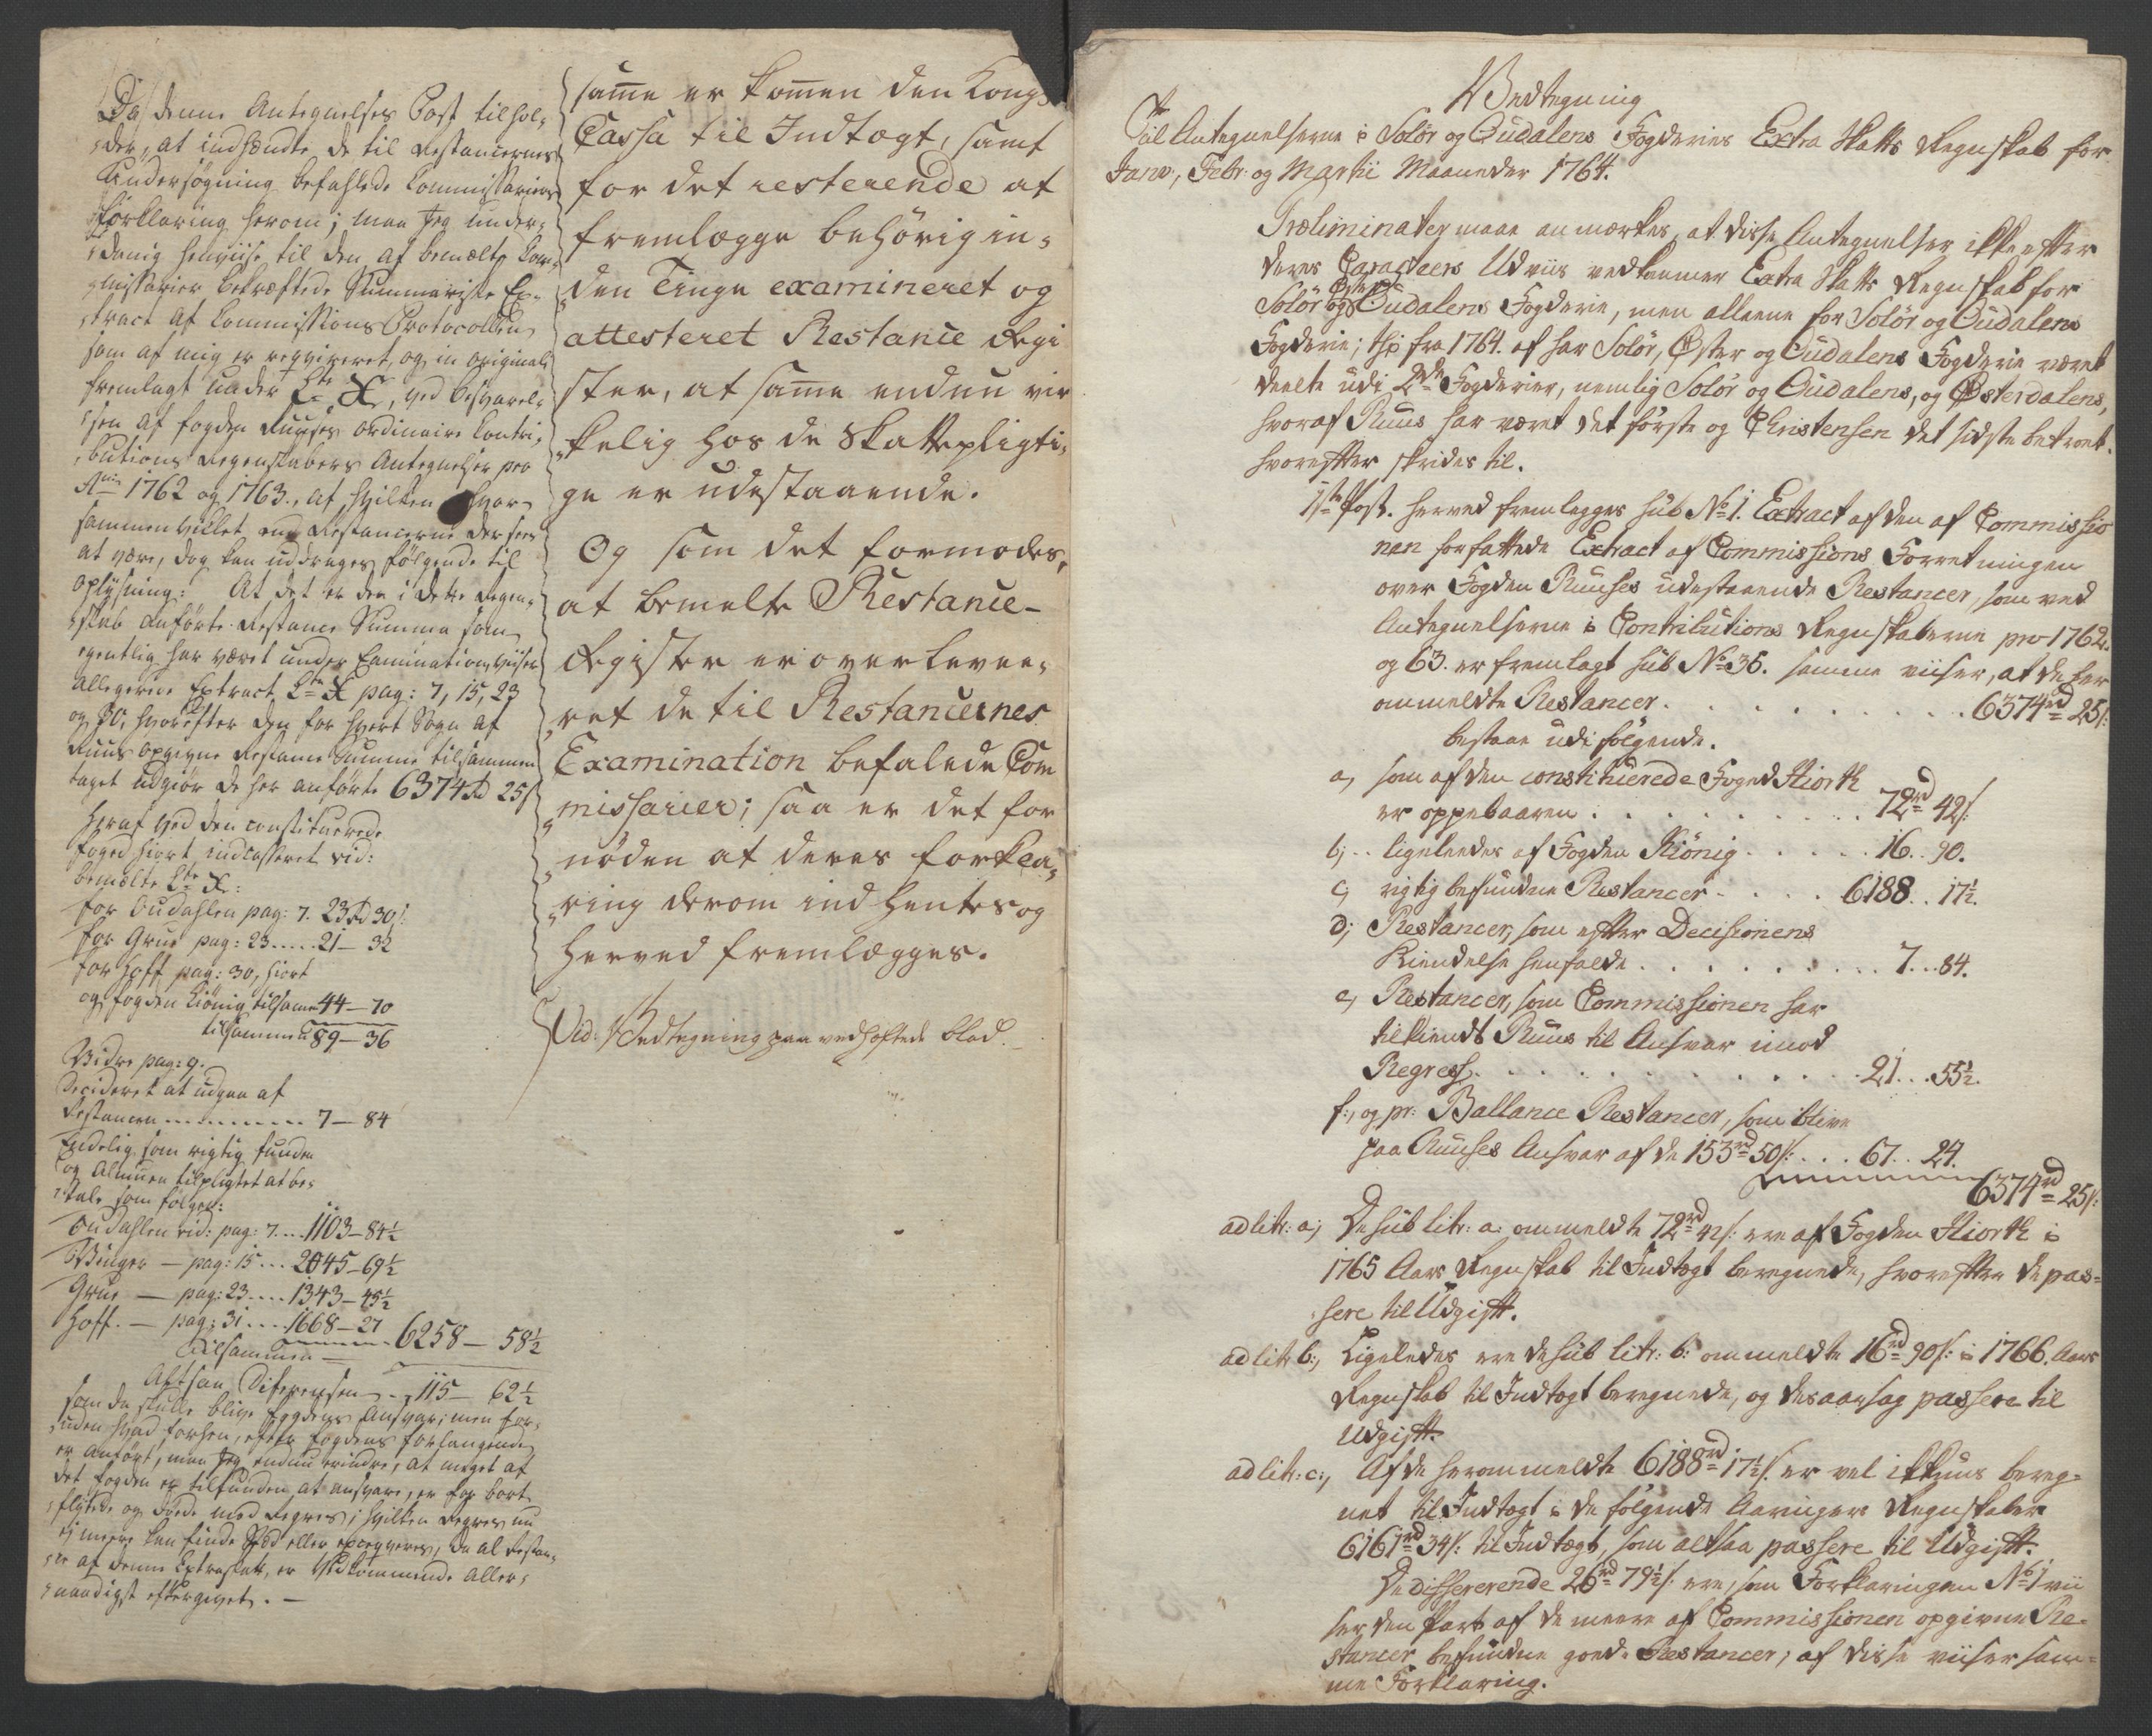 Da denne Antegnelses Post tilhol-
der, at indhendte de til Restancernes
Undersøgning befahlede Commissariers
Forklaring herom; maa Jeg under-
danig henviise til den af bemælte Com-
missarier bekræftede Summariske Ex-
tract af Commissions Protocollen
som af mig er reqvireret, og in originali
fremlagt under Ltr X, ved Besvarel-
sen af fogden Ruuses ordinaire Contri-
butions Regenskabers Antegnelser pro
Anno 1762 og 1763, af hvilken hvor
sammenviklet end Restancerne der sees
at være, dog kan uddrages følgende til
Oplysning: At det er den i dette Regen-
skab anførte Restance Summa som
egentlig har været under Examination, viiser
allegerede Extract Ltr X pag: 7, 15, 23
og 30, hvorefter den for hvert Sogn af
Ruus opgivne Restance Summe tilsammen
taget udgiør de her anførte 6374 rd 25 s
Heraf ved den constituerede
foged Hiort indcasseret vid:
bemælte Ltr X:
for Oudahlen pag: 7. 23 rd 30 s:
for Grue pag: 23 ..... 21 - 32
for Hoff pag: 30, Hiort
og fogden Kiönig tilsame 44 - 70
tilsammen 89 - 36
Vidre pag: 9.
Decideret at udgaae af
Restancen ........... 7 - 84
Endelig som rigtig funden
og Almuen tilpligtet at be-
tale som følger:
Oudahlen vid: pag: 7 ... 1103 - 84½
Winger - pag: 15 ... 2045 - 69½
Grue - pag: 23 .... 1343 - 45½
Hoff. - pag: 31 .... 1668 - 27
Tilsammen - 6258 - 58½
Altsaa Diferensen .. 115 - 62½
som da skulle blive Fogdens Ansvar; men for-
uden hvad forhen, efter fogdens forlangende
er anført, maa Jeg endnu erindre, at meget af
det fogden er tilfunden at ansvare, er for bort-
flytede og døde med Regres; hvilken Regres nu
ej meere kan finde Stæd eller exeqveres, da al Restan-
ce af denne Extraskatt, er Vedkommende Aller-
naadigst eftergivet. -
samme er kommen den Kongs
Cassa til Indtægt, samt
for det resterende at
fremlægge behörig in-
den Tinge examineret og
attesteret Restance Regi
ster, at samme endnu vir
kelig hos de Skattepligti-
ge er udestaaende.
Og som det formodes,
at bemelte Restance-
Register er overlevee-
ret de til Restancernes
Examination befalede Com
missarier; saa er det for
nöden at deres forkla-
ring derom indhentes og
herved fremlægges.
Vid: Vedtegning paa vedhæftede blad.
Vedtegning
Til Antegnelserne i Solör og Oudalens Fogderies Extra Skatts Regnskab for
Janv:, Febr: og Martii Maaneder 1764.
Præliminater maae anmærkes, at disse Antegnelser ikke efter
deres Caracteers Udviis vedkommer Extra Skatts Regnskab for
Solör Öster og Oudalens Fogderie, men alleene for Solör og Oudalens
Fogderie; thi fra 1764. af har Solör, Öster og Oudalens Fogderie været
deelte udi 2de Fogderier, nemlig Solör og Oudalens, og Österdalens,
hvoraf Ruus har været det förste og Christensen det sidste betroet.
hvorefter skrides til.
1ste Post. herved fremlegges sub No 1. Extract af den af Commissio
nen forfattede Extract af Commissions Forretningen
over Fogden Ruuses udestaaende Restancer, som ved
Antegnelserne i Contributions Regnskaberne pro 1762.
og 63. er fremlagt sub No 36. samme viiser, at de her
ommeldte Restancer . . . . . . . . 6374 rd 25 s:
bestaae udi fölgende.
a, som af den constituerede Foged Hiorth
er oppebaaren . . . . . . . . . 72 rd 42 s:
b; .. ligeleedes af Fogden Kiönig . . . . . 16 . . 90.
c, rigtig befundne Restancer - . . . . 6188 . . 17½.
d; Restancer, som efter Decisionens
Kiendelse henfalde . . . . . . . . . 7 . . . 84.
e, Restancer, som Commissionen har
tilkiendt Ruus til Ansvar imod
Regress. . . . . . . . . . . . 21 . . . 55½.
f:, og pr: Ballance Restancer, som blive
paa Ruuses Ansvar af de 153 rd 50 s: . . . 67 . . 24.
6374 rd 25 s:
ad litr: a; De sub litr: a: ommeldte 72 rd 42 s: ere af Fogden Hiorth i
1765 Aars Regnskab til Indtægt beregnede, hvorefter de pas-
sere til Udgift.
ad litr b:, Ligeledes ere de sub litr: b: ommeldte 16 rd 90 s: i 1766. Aars
Regnskab til Indtægt beregnede, og desaarsag passere til
Udgift.
ad litr: c:, Af de herommeldte 6188 rd 17½ s. er vel ikkuns bereg-
net til Indtægt i de fölgende Aaringers Regnskaber
6161 rd 34 s: til Indtægt, som altsaa passere til Udgift.
De differerende 26 rd 79½ s: ere, som Forklaringen No 1 vii
ser den Part af de meere af Commissionen opgivne Re-
stancer befundne goede Restancer; af disse viiser sam-
me Forklaring.